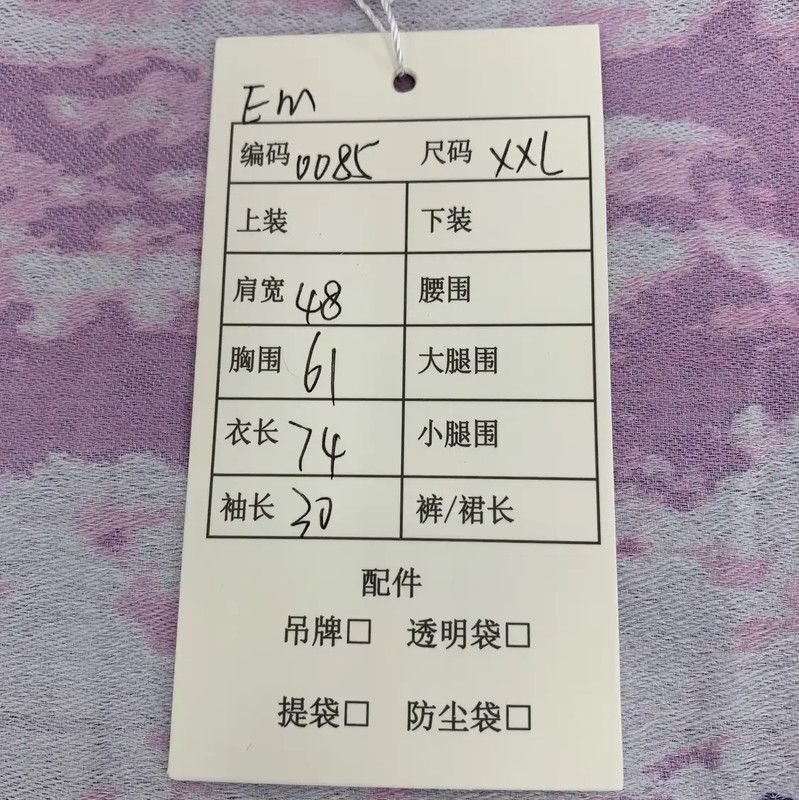 Em
编码 0085 尺码 XXL
上装 下装
肩宽 48 腰围
胸围 61 大腿围
衣长 74 小腿围
袖长 30 裤/裙长
配件
吊牌□ 透明袋□
提袋□ 防尘袋□